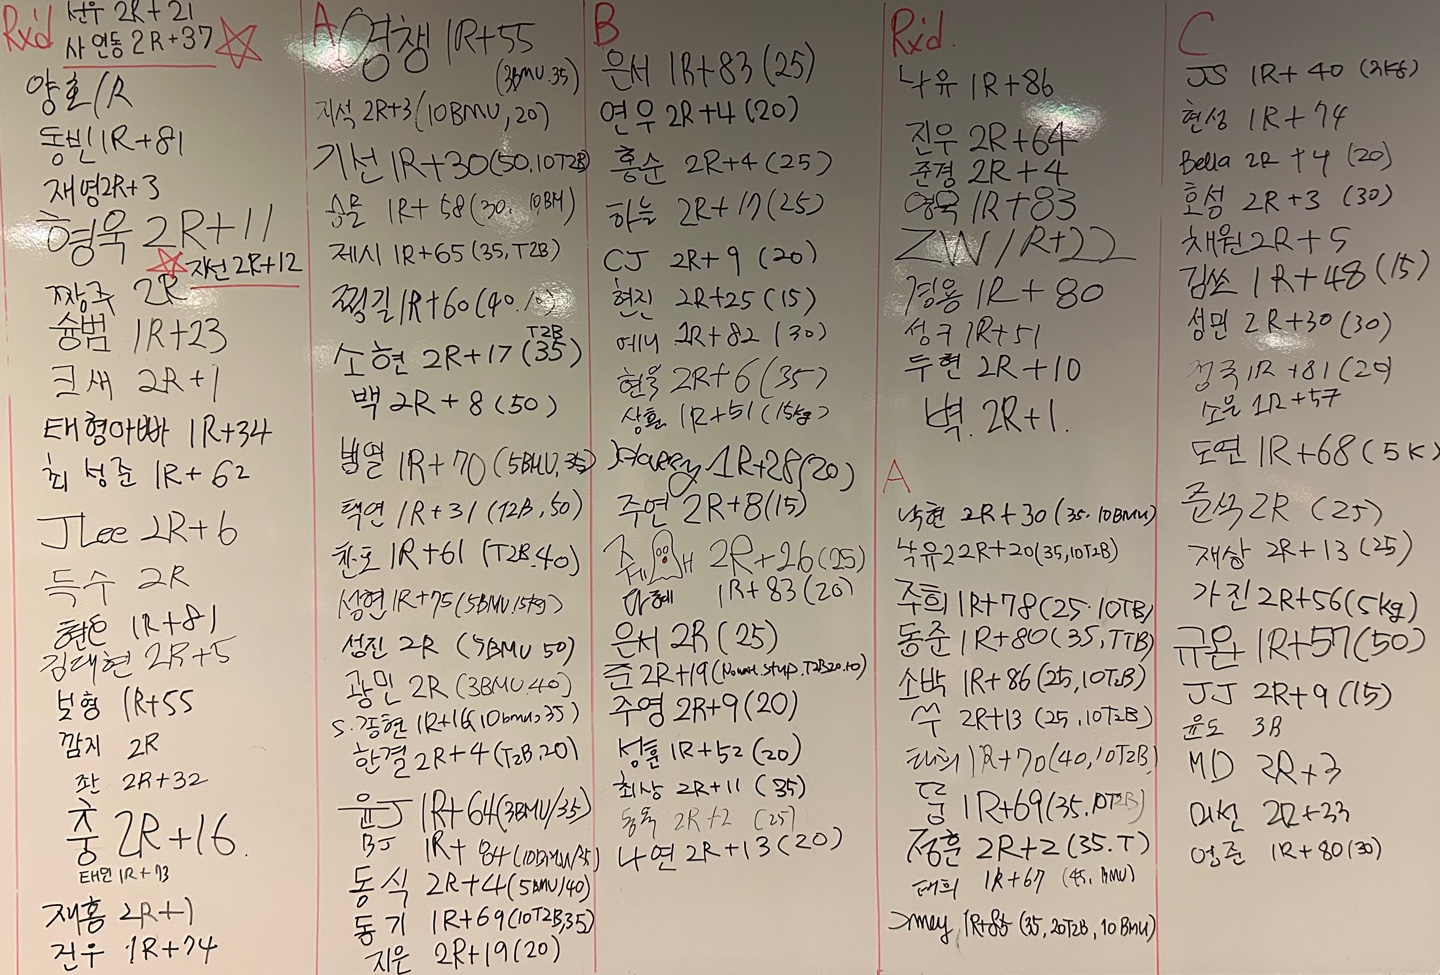 Rx'd
선우 2R+21
사 연동 2R+37
양호 1R
동빈 1R+81
재영 2R+3
형욱 2R+11
지선 2R+12
짱구 2R
슝범 1R+23
크새 2R+1
태형아빠 1R+34
최성준 1R+62
JLee 2R+6
득수 2R
1R+81
김대현 2R+5
보형 1R+55
깜지 2R
좌 2R+32
충 2R+16
태민 1R+73
재홍 2R+1
건우 1R+74
A
영챙 1R+55
(3BMU.35)
지석 2R+3 (10BMU, 20)
기선 1R+30 (50.10T2B)
승률 1R+58 (30. 10BM)
제시 1R+65 (35, T2B)
찍길 1R+60 (40.10)
소현 2R+17 (35) T2B
백 2R+8 (50)
범열 1R+70 (5BMU, 35)
택연 1R+31 (T2B, 50)
찬호 1R+61 (T2B.40)
성현 1R+75 (5BMU 15kg)
성진 2R (5BMU 50)
광민 2R (3BMU.40)
S.종현 1R+16 (10bmu, 35)
한결 2R+4 (T2B, 20)
윤J 1R+64 (3BMU/35)
BJ 1R+84 (10BMU/35)
동식 2R+4 (5BMU/40)
동기 1R+69 (10T2B,35)
지은 2R+19 (20)
B
은서 1R+83 (25)
연우 2R+4 (20)
홍순 2R+4 (25)
하늘 2R+17 (25)
CJ 2R+9 (20)
현진 2R+25 (15)
에니 1R+82 (30)
현욱 2R+6 (35)
상훈 1R+51 (15kg)
Harry 1R+28 (20)
주연 2R+8 (15)
2R+26 (25)
다혜 1R+83 (20)
은서 2R (25)
준 2R+19
주영 2R+9 (20)
성훈 1R+52 (20)
최상 2R+11 (35)
동욱 2R+2 (25)
나연 2R+13 (20)
Rx'd.
낙유 1R+86
진우 2R+64
준경 2R+4
영욱 1R+83
ZW 1R+22
경용 1R+80
성구 1R+51
두현 2R+10
벽. 2R+1.
A
낙현 2R+30 (35.10BMU)
낙유2 2R+20 (35,10T2B)
주희 1R+78 (25.10TB)
동준 1R+80 (35, TTB)
소박 1R+86 (25,10T2B)
쑤 2R+13 (25.10T2B)
1R+70 (40,10T2B)
듬 1R+69 (35.10T2B)
정훈 2R+2 (35.T)
태희 1R+67 (45. BMU)
1R+85 (35, 20T2B, 10BMU)
C
JS 1R+40
현성 1R+74
Bella 2R+4 (20)
호성 2R+3 (30)
채원 2R+5
김쏘 1R+48 (15)
성민 2R+30 (30)
정국 1R+81 (20)
소은 1R+57
도연 1R+68 (5K)
준석 2R (25)
재상 2R+13 (25)
가진 2R+56 (5kg)
규완 1R+57 (50)
JJ 2R+9 (15)
윤도 3R
MD 2R+3
미선 2R+33
영준 1R+80 (30)